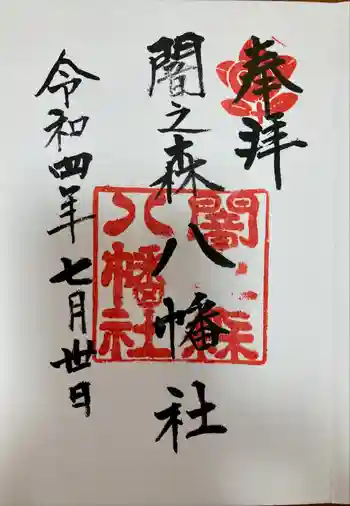 奉拝
闇之森八幡社
闇之森八幡社
令和四年七月卅日